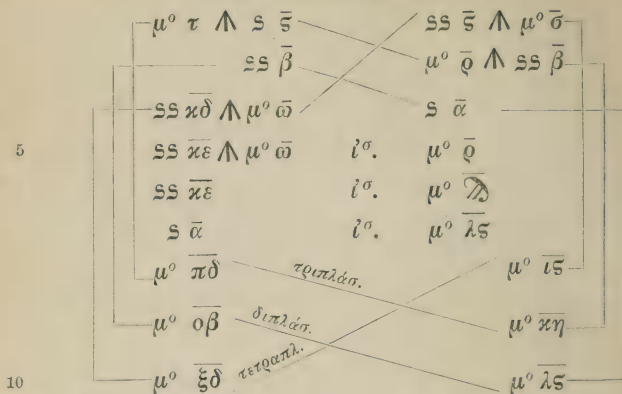 μº τ ⩚ ς ϛ̅ ςς ϛ̅ ⩚ μº σ̅
ςς β̅ μº ρ̅ ⩚ ςς β̅
ςς κ̅δ̅ ⩚ μº ω̅ ς α̅
5 ςς κ̅ε̅ ⩚ μº ω̅ ἰσ. μº ρ̅
ςς κ̅ε̅ ἰσ. μº ϡ̅
ς α̅ ἰσ. μº λ̅ϛ̅
μº π̅δ̅ τριπλάσ. μº ι̅ϛ̅
μº ο̅β̅ διπλάσ. μº κ̅η̅
10 μº ξ̅δ̅ τετραπλ. μº λ̅ϛ̅